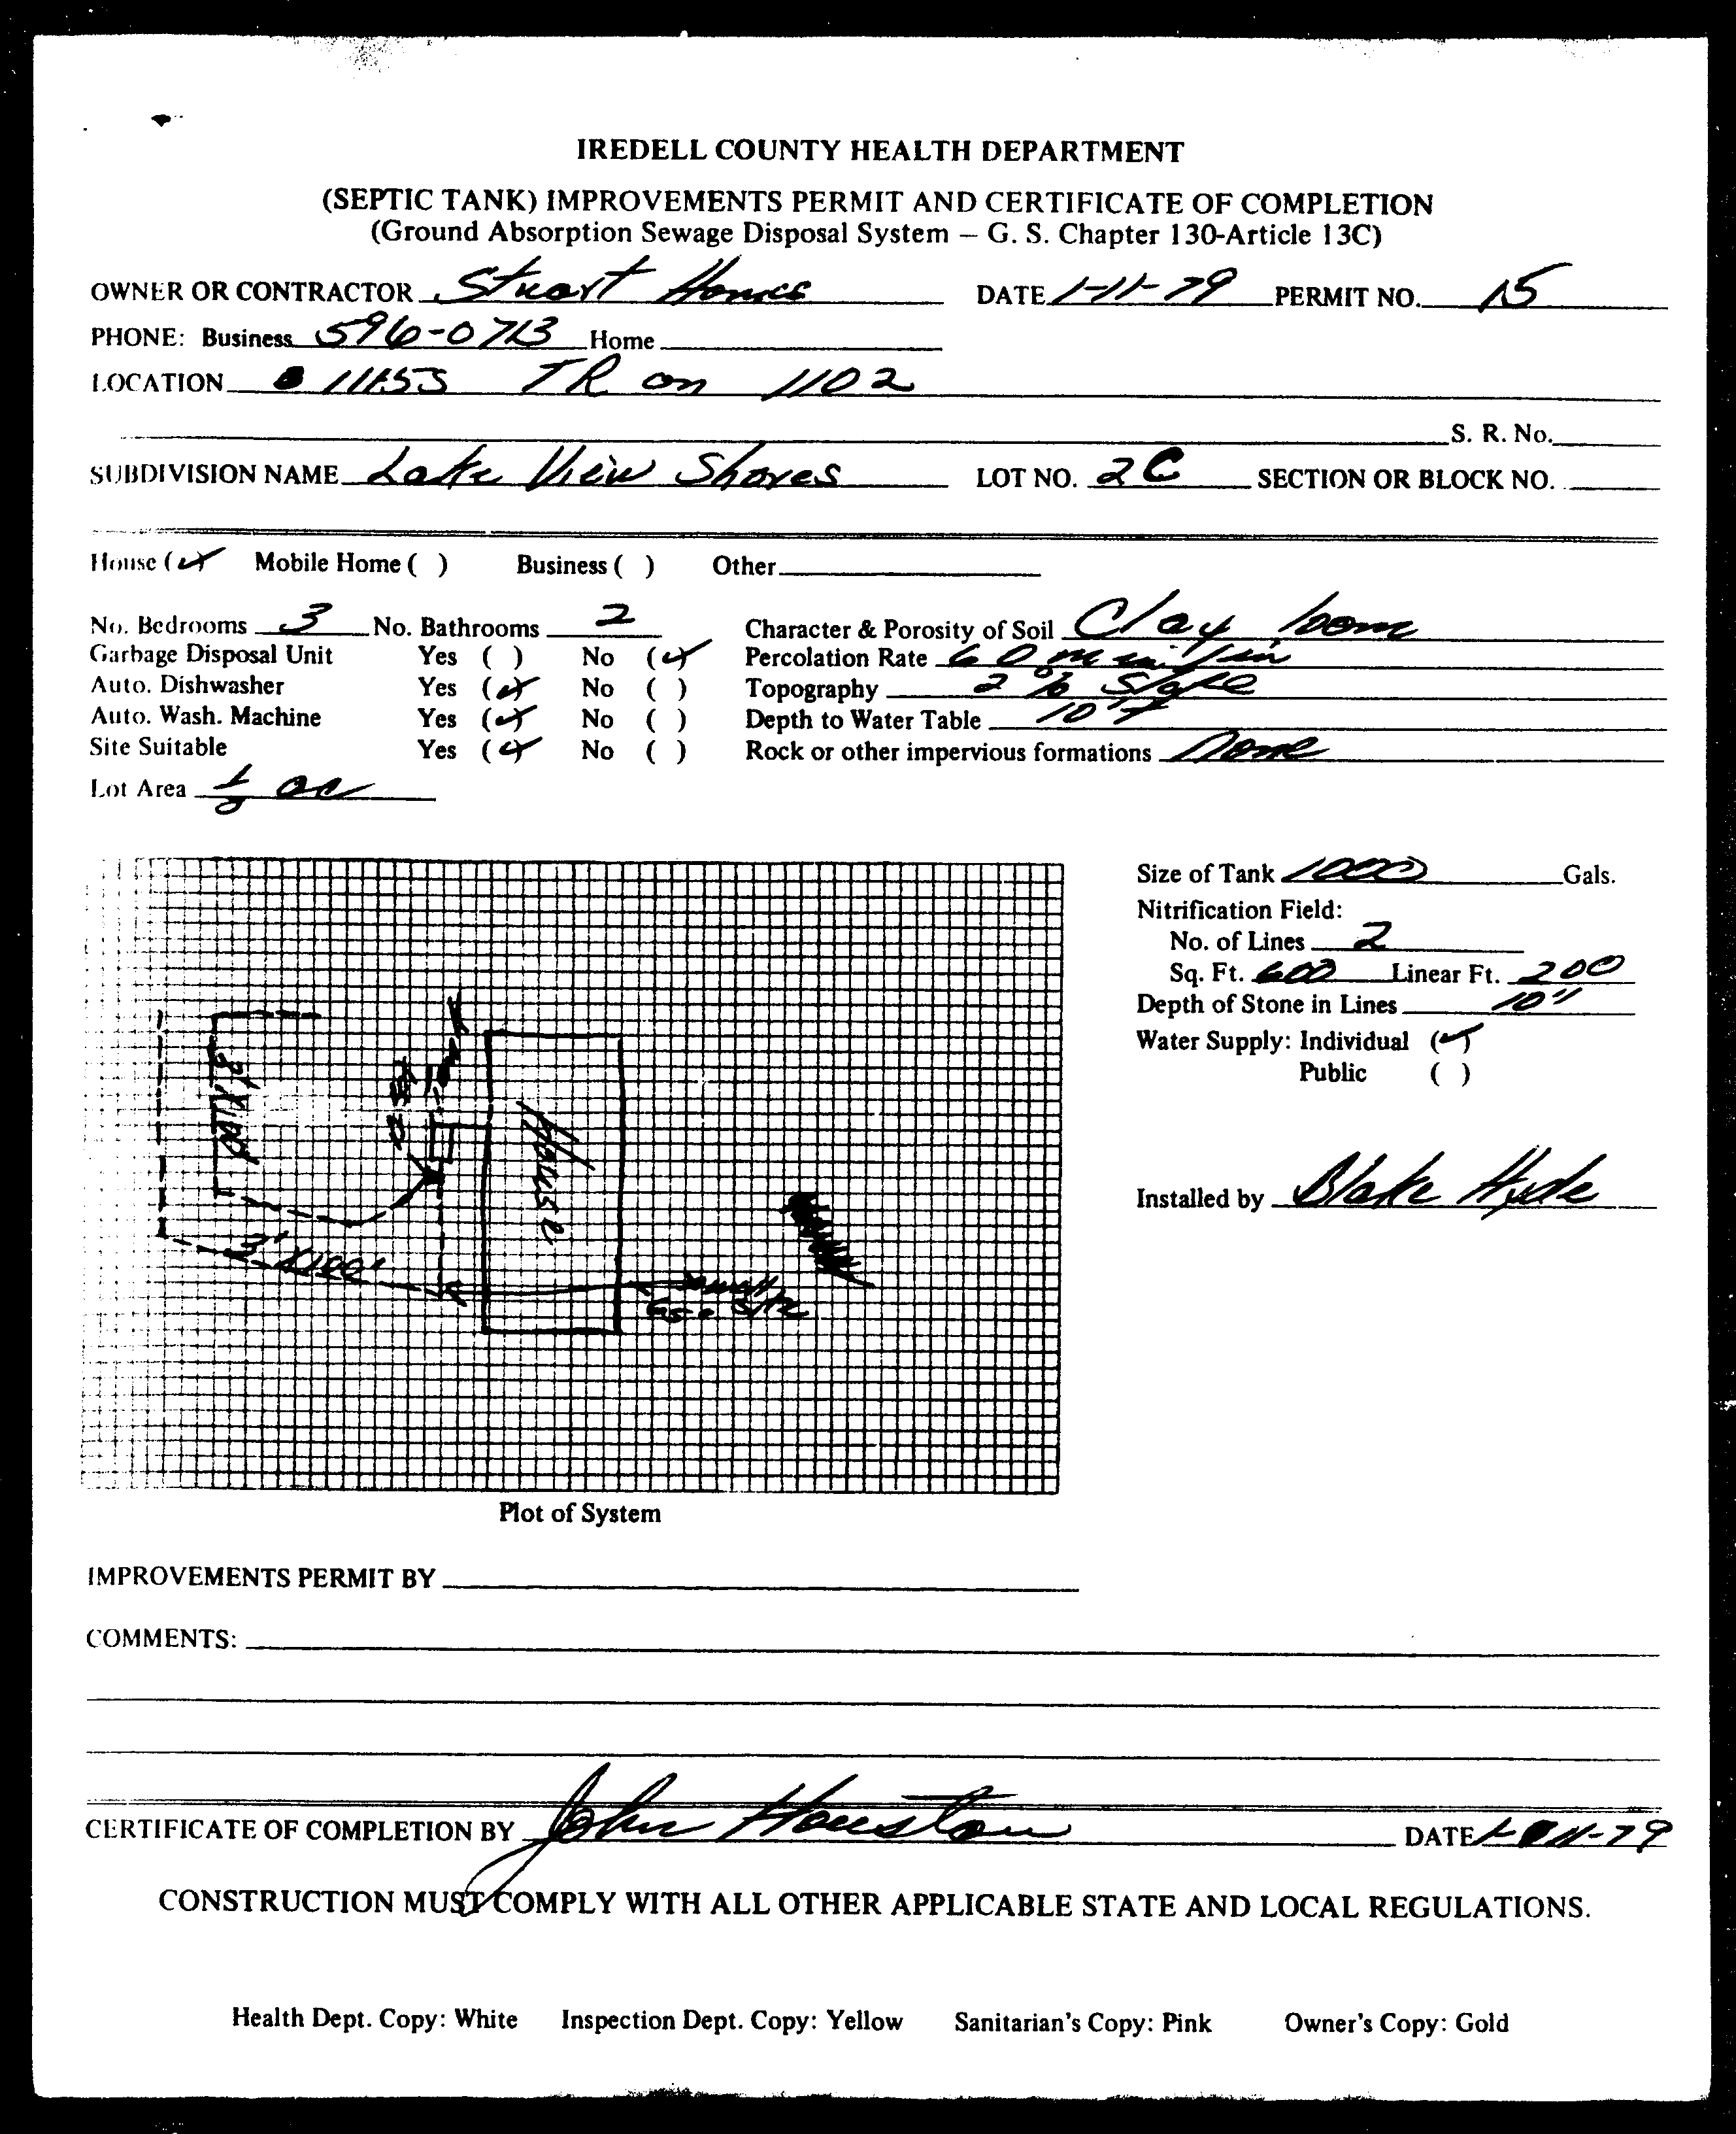 IREDELL COUNTY HEALTH DEPARTMENT
(SEPTIC TANK) IMPROVEMENTS PERMIT AND CERTIFICATE OF COMPLETION
(Ground Absorption Sewage Disposal System – G. S. Chapter 130-Article 13C)
OWNER OR CONTRACTOR Stuart Homes DATE 1-11-79 PERMIT NO. 15
PHONE: Business 596-0713 Home
LOCATION TR on 1102
S. R. No.
SUBDIVISION NAME Lake View Shores LOT NO. 2C SECTION OR BLOCK NO.
House (✓) Mobile Home ( ) Business ( ) Other
No. Bedrooms 3 No. Bathrooms 2 Character & Porosity of Soil Clay loam
Garbage Disposal Unit Yes ( ) No (✓) Percolation Rate 60 min/in
Auto. Dishwasher Yes (✓) No ( ) Topography 2% slope
Auto. Wash. Machine Yes (✓) No ( ) Depth to Water Table 10'+
Site Suitable Yes (✓) No ( ) Rock or other impervious formations None
Lot Area ½ ac
Size of Tank 1000 Gals.
Nitrification Field:
No. of Lines 2
Sq. Ft. 600 Linear Ft. 200
Depth of Stone in Lines 10"
Water Supply: Individual (✓)
Public ( )
Installed by Blake Hyde
3'X100'
House
3'X100'
Plot of System
IMPROVEMENTS PERMIT BY
COMMENTS:
CERTIFICATE OF COMPLETION BY John Houston DATE 1-11-79
CONSTRUCTION MUST COMPLY WITH ALL OTHER APPLICABLE STATE AND LOCAL REGULATIONS.
Health Dept. Copy: White Inspection Dept. Copy: Yellow Sanitarian's Copy: Pink Owner's Copy: Gold